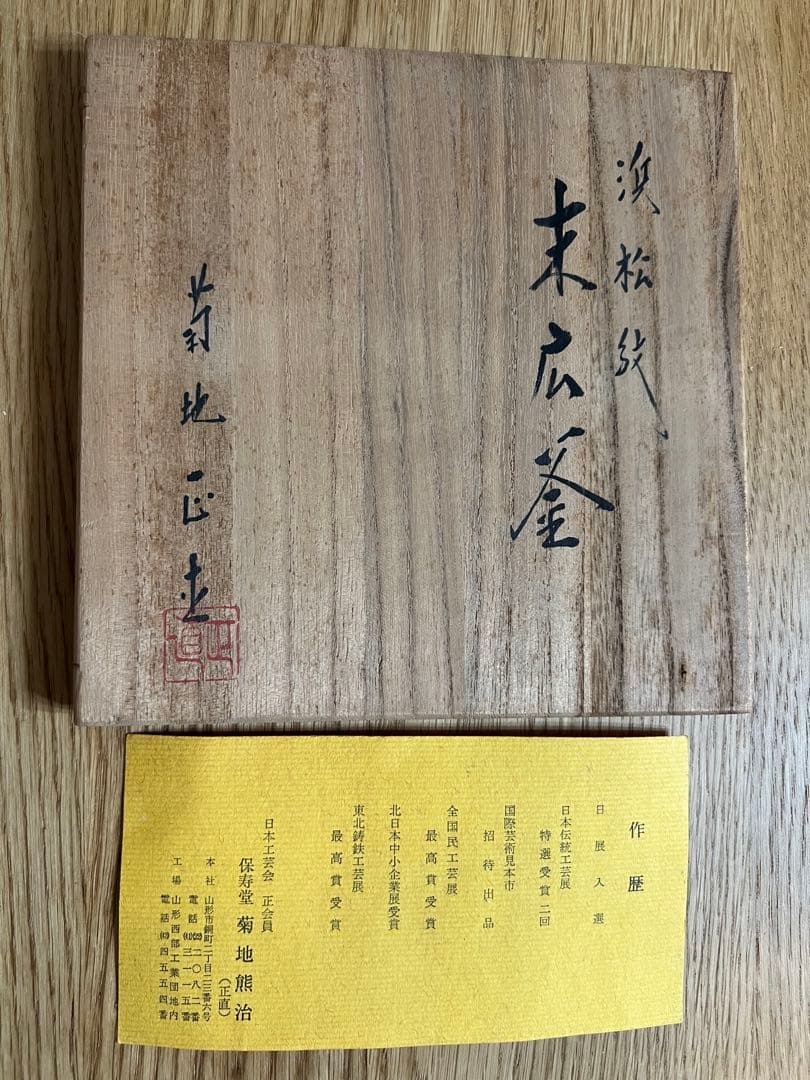 浜松紋
末広釜
菊地正直
正直
作歴
日展入選
日本伝統工芸展
特選受賞二回
国際芸術見本市
招待出品
全国民工芸展
最高賞受賞
北日本中小企業展受賞
東北鋳鉄工芸展
最高賞受賞
日本工芸会 正会員
保寿堂 菊地熊治
(正直)
本社 山形市銅町二丁目二三番六号
電話 ㉒二〇八二番
電話 ㉛三一一五番
工場 山形西部工業団地内
電話 ㊹四五五四番